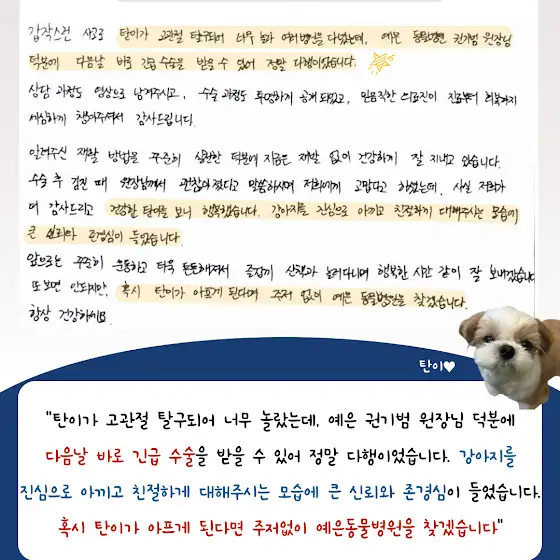 갑작스런 사고로 탄이가 고관절 탈구되어 너무 놀라 여러병원을 다녔었는데, 예은 동물병원 권기범 원장님
덕분에 다음날 바로 긴급 수술을 받을 수 있어 정말 다행이었습니다.
상담 과정도 영상으로 남겨주시고, 수술 과정도 투명하게 공개되었고, 믿음직한 의료진이 진료부터 회복까지
세심하게 챙겨주셔서 감사드립니다.
알려주신 재활 방법을 꾸준히 실천한 덕분에 지금은 재발 없이 건강하게 잘 지내고 있습니다.
수술 후 검진 때 원장님께서 괜찮아졌다고 말씀하시며 저희에게 고맙다고 하셨는데, 사실 저희가
더 감사드리고 건강한 탄이를 보니 행복했습니다. 강아지를 진심으로 아끼고 친절하게 대해주시는 모습에
큰 신뢰와 존경심이 들었습니다.
앞으로도 꾸준히 운동하고 더욱 튼튼해져서 즐겁게 산책과 놀러다니며 행복한 시간 같이 잘 보내겠습니다
또 보면 안되지만, 혹시 탄이가 아프게 된다면 주저 없이 예은 동물병원을 찾겠습니다.
항상 건강하세요.
탄이♥
"탄이가 고관절 탈구되어 너무 놀랐는데, 예은 권기범 원장님 덕분에
다음날 바로 긴급 수술을 받을 수 있어 정말 다행이었습니다. 강아지를
진심으로 아끼고 친절하게 대해주시는 모습에 큰 신뢰와 존경심이 들었습니다.
혹시 탄이가 아프게 된다면 주저없이 예은동물병원을 찾겠습니다"